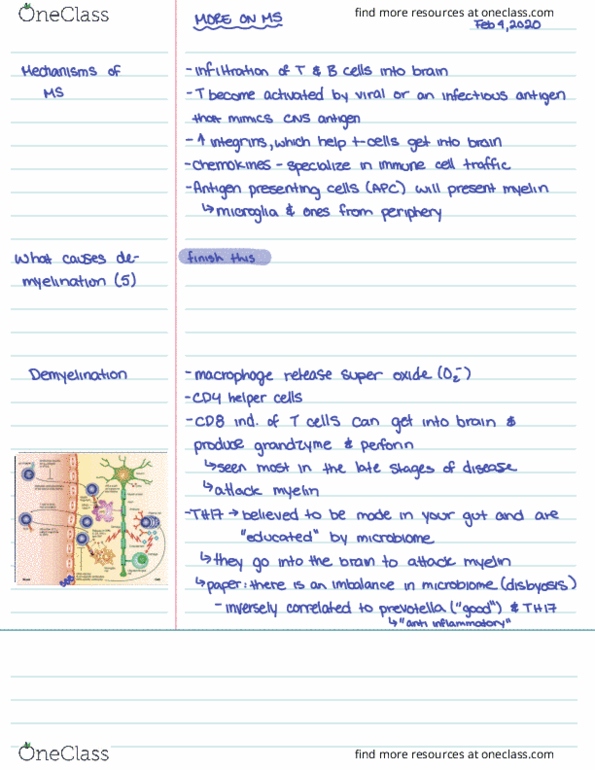 OneClass
find more resources at oneclass.com
MORE ON MS
Feb 4, 2020
Mechanisms of
MS
- infiltration of T & B cells into brain
- T become activated by viral or an infectious antigen
that mimics CNS antigen
- ↑ integrins, which help t-cells get into brain
- chemokines - specialize in immune cell traffic
- Antigen presenting cells (APC) will present myelin
↳ microglia & ones from periphery
What causes de-
myelination (5)
finish this
Demyelination
- macrophage release super oxide (O₂⁻)
- CD4 helper cells
- CD8 ind. of T cells can get into brain &
produce grandzyme & perforin
↳ seen most in the late stages of disease
↳ attack myelin
- TH17 → believed to be made in your gut and are
"educated" by microbiome
↳ they go into the brain to attack myelin
↳ paper: there is an imbalance in microbiome (disbyosis)
- inversely correlated to prevotella ("good") & TH17
↳ "anti inflammatory"
OneClass
find more resources at oneclass.com